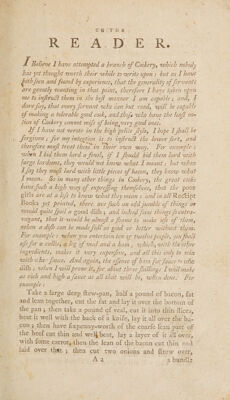 TO THE
READER.
I Believe I have attempted a branch of Cookery, which nobody
has yet thought worth their while to write upon; but as I have
both seen and found by experience, that the generality of servants
are greatly wanting in that point, therefore I have taken upon
me to instruct them in the best manner I am capable; and, I
dare say, that every servant who can but read, will be capable
of making a tolerable good cook, and those who have the least no-
tion of Cookery cannot miss of being very good ones.
If I have not wrote in the high polite stile, I hope I shall be
forgiven; for my intention is to instruct the lower sort, and
therefore must treat them in their own way. For example:
when I bid them lard a fowl, if I should bid them lard with
large lardoons, they would not know what I meant; but when
I say they must lard with little pieces of bacon, they know what
I mean. So in many other things in Cookery, the great cooks
have such a high way of expressing themselves, that the poor
girls are at a loss to know what they mean: and in all Receipt
Books yet printed, there are such an odd jumble of things as
would quite spoil a good dish; and indeed some things so extra-
vagant, that it would be almost a shame to make use of them,
when a dish can be made full as good or better without them.
For example: when you entertain ten or twelve people, you shall
use for a cullis, a leg of veal and a ham, which, with the other
ingredients, makes it very expensive, and all this only to mix
with other sauce. And again, the essence of ham for sauce to one
dish; when I will prove it, for about three shillings I will make
as rich and high a sauce as all that will be, when done. For
example:
Take a large deep stew-pan, half a pound of bacon, fat
and lean together, cut the fat and lay it over the bottom of
the pan; then take a pound of veal, cut it into thin slices,
beat it well with the back of a knife, lay it all over the ba-
con; then have sixpenny-worth of the coarse lean part of
the beef cut thin and well beat, lay a layer of it all over,
with some carrot, then the lean of the bacon cut thin and
laid over that; then cut two onions and strew over,
A 2
a bundle